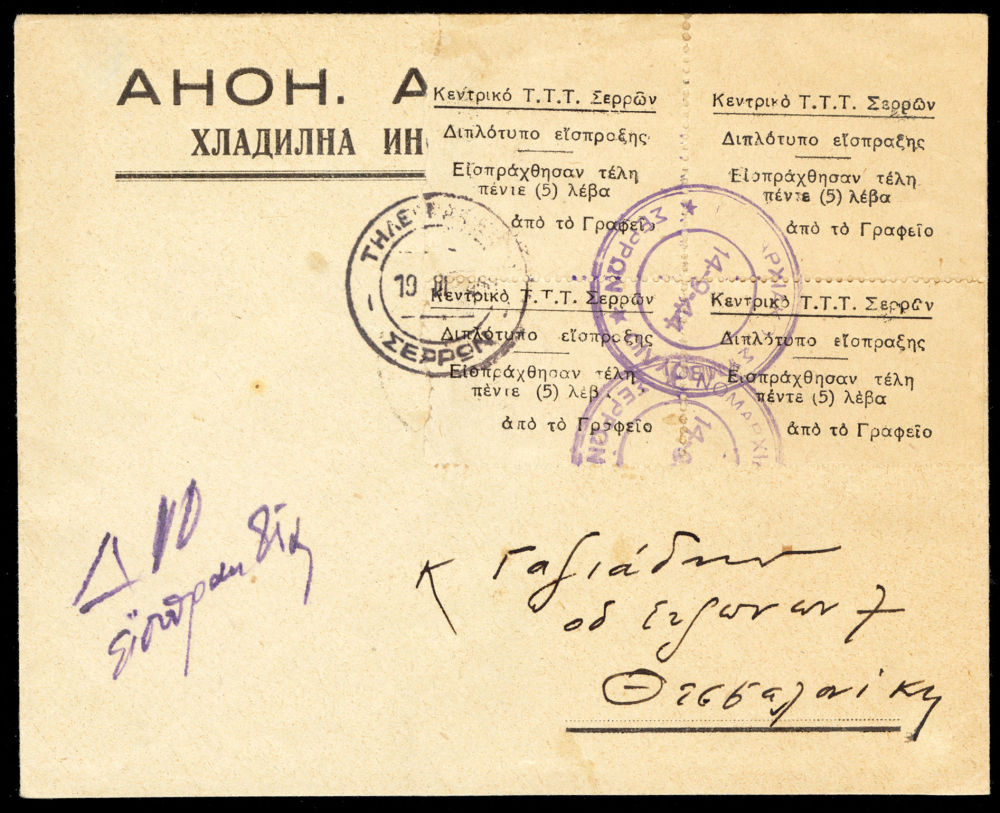 АНОН. А
ХЛАДИЛНА ИН
Κεντρικό Τ.Τ.Τ. Σερρῶν
Διπλότυπο εἴσπραξης
Εἰσπράχθησαν τέλη
πέντε (5) λέβα
ἀπὸ τὸ Γραφεῖο
Κεντρικὸ Τ.Τ.Τ. Σερρῶν
Διπλότυπο εἴσπραξης
Εἰσπράχθησαν τέλη
πέντε (5) λέβα
ἀπὸ τὸ Γραφεῖο
Κεντρικὸ Τ.Τ.Τ. Σερρῶν
Διπλότυπο εἴσπραξης
Εἰσπράχθησαν τέλη
πέντε (5) λέβα
ἀπὸ τὸ Γραφεῖο
Κεντρικὸ Τ.Τ.Τ. Σερρῶν
Διπλότυπο εἴσπραξης
Εἰσπράχθησαν τέλη
πέντε (5) λέβα
ἀπὸ τὸ Γραφεῖο
19
ΣΕΡΡΩΝ
ΣΕΡΡΩΝ
14-9-44
ΝΟΜΑΡΧΙΑ
ΣΕΡΡΩΝ
Κ
οδ
7
Θεσσαλονίκη